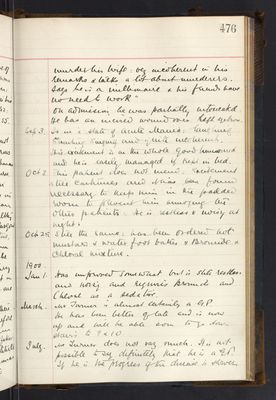 476
murder his wife. very incoherent in his
remarks & talks a lot about murderers.
Says he is a millionaire & his friends have
no need to work"
On admission he was partially intoxicated
He has an incised wound over
Sep 3. is in a state of acute Mania:
and quite incoherent.
His excitement is on the whole good humoured
and he is easily managed if kept in bed.
Oct 2. This patient does not mend. Excitement
continues and it has been found
necessary to keep him in the padded
room to prevent him annoying the
other patients. He is restless & noisy at
night.
Oct 29 Still the same. has been ordered hot
mustard & water foot baths & Bromide &
Chloral mixture.
1900
Jan 1. Has improved somewhat but is still restless
and noisy and requires Bromide and
Chloral as a sedative
March. Turner is almost certainly a G.P.
He has been better of late and is now
up and will be able soon to go down
stairs to
July. Turner does not vary much. It is not
possible to say definitely that he is a G.P.
If he is the progress of the disease is slower